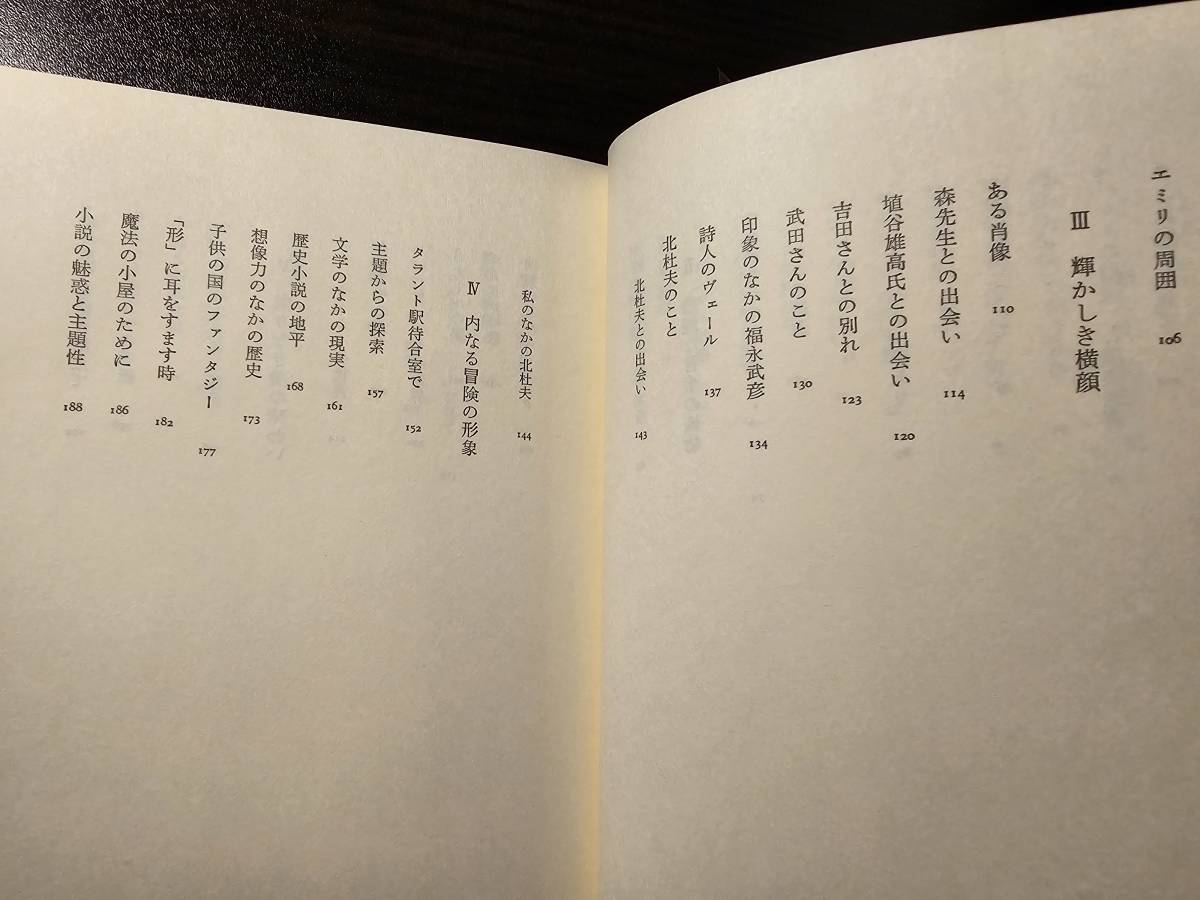 エミリの周囲 106
Ⅲ 輝かしき横顔
ある肖像 110
森先生との出会い 114
埴谷雄高氏との出会い 120
吉田さんとの別れ 123
武田さんのこと 130
印象のなかの福永武彦 134
詩人のヴェール 137
北杜夫のこと
北杜夫との出会い 143
私のなかの北杜夫 144
Ⅳ 内なる冒険の形象
タラント駅待合室で 152
主題からの探索 157
文学のなかの現実 161
歴史小説の地平 168
想像力のなかの歴史 173
子供の国のファンタジー 177
「形」に耳をすます時 182
魔法の小屋のために 186
小説の魅惑と主題性 188